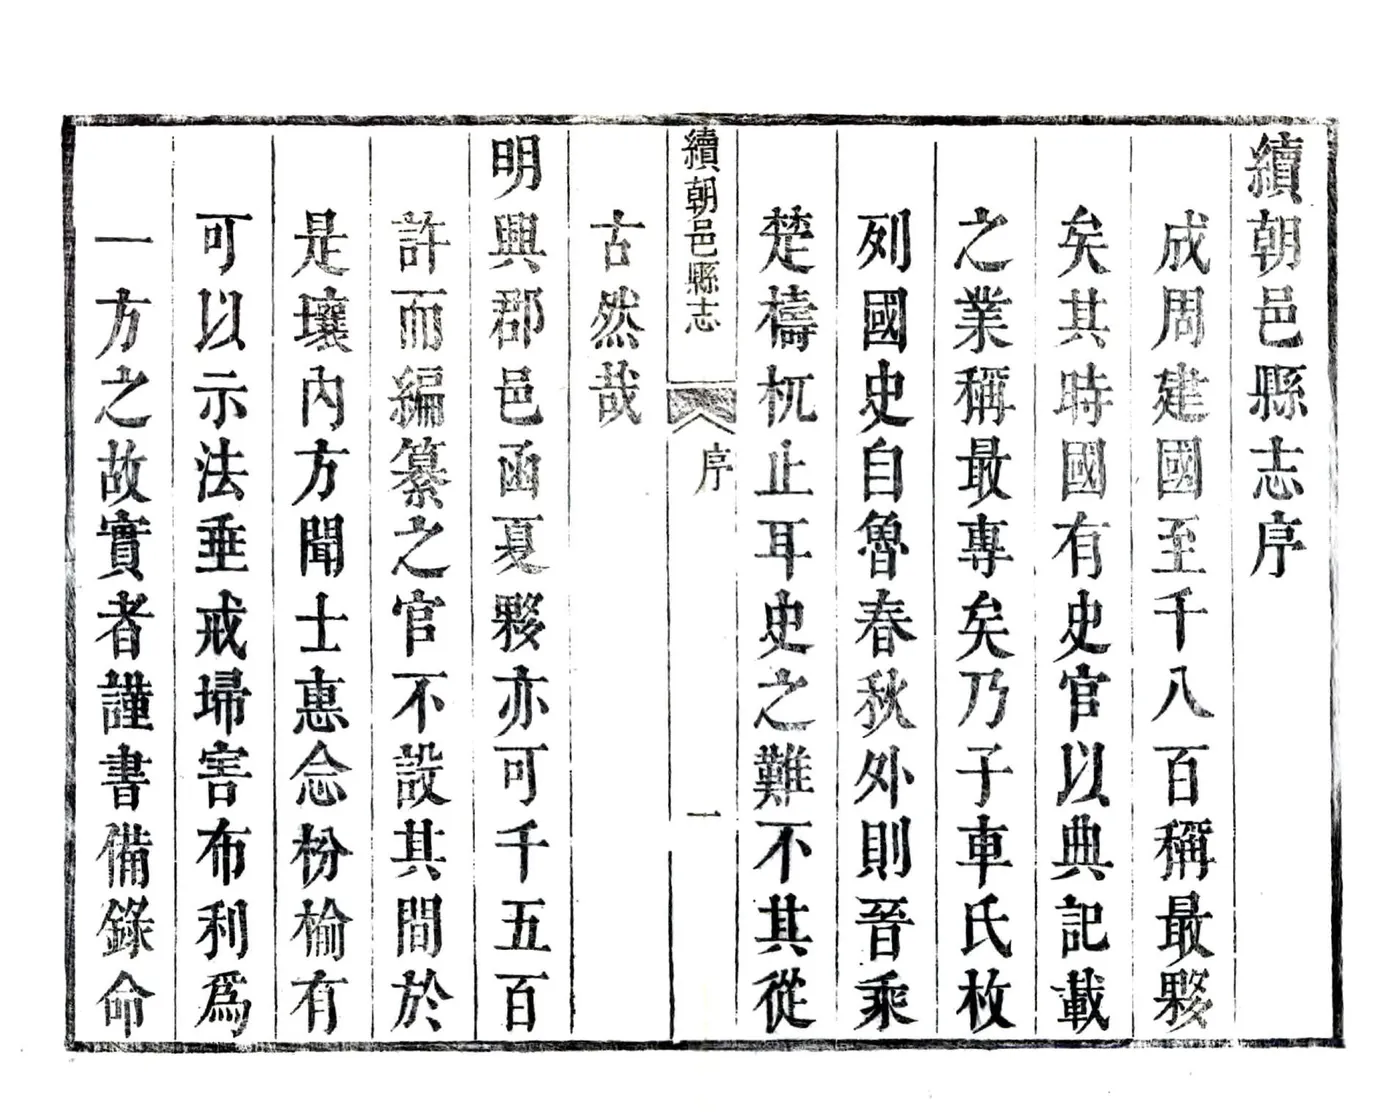 續朝邑縣志序
成周建國至千八百稱最夥
矣其時國有史官以典記載
之業稱最專矣乃子車氏枚
列國史自魯春秋外則晉乘
楚檮杌止耳史之難不其從
古然哉
續朝邑縣志
序
一
明興郡邑函夏夥亦可千五百
許而編纂之官不設其間於
是壤內方聞士惠念枌榆有
可以示法垂戒埽害布利爲
一方之故實者謹書備錄命